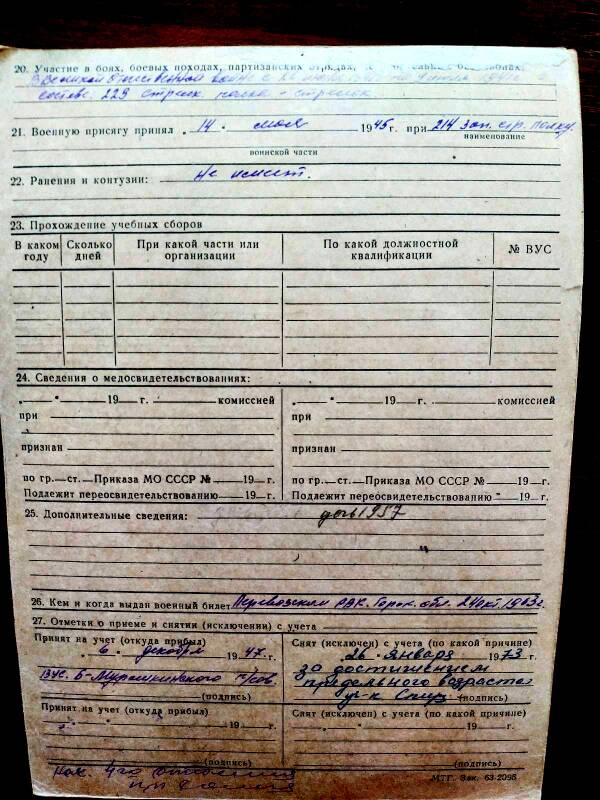 20. Участие в боях, боевых походах, партизанских отрядах,
в Великой Отечественной войне с
составе 229 стрелк полка - стрелок
21. Военную присягу принял „14" мая 1945 г. при 214 зап. стр. полку.
наименование
воинской части
22. Ранения и контузии: Не имеет.
23. Прохождение учебных сборов
В каком году Сколько дней При какой части или организации По какой должностной квалификации № ВУС
24. Сведения о медосвидетельствованиях:
„ " 19 г. комиссией „ " 19 г. комиссией
при при
признан признан
по гр. ст. Приказа МО СССР № 19 г. по гр. ст. Приказа МО СССР № 19 г.
Подлежит переосвидетельствованию 19 г. Подлежит переосвидетельствованию " 19 г.
25. Дополнительные сведения: дочь 1957
26. Кем и когда выдан военный билет Перевозским РВК. Горьк. обл. 24 окт. 1963 г.
27. Отметки о приеме и снятии (исключении) с учета
Принят на учет (откуда прибыл) Снят (исключен) с учета (по какой причине)
„6" декабря 1947 г. 26 января 1973 г.
ВУС. Б-Мурашкинского с/сов. за достижением
(подпись) предельного возраста
(подпись)
Принят на учет (откуда прибыл) Снят (исключен) с учета (по какой причине)
„ " 19 г. „ " 19 г.
(подпись) (подпись)
МТГ. Зак. 63-2095
Нач. 4-го отделения